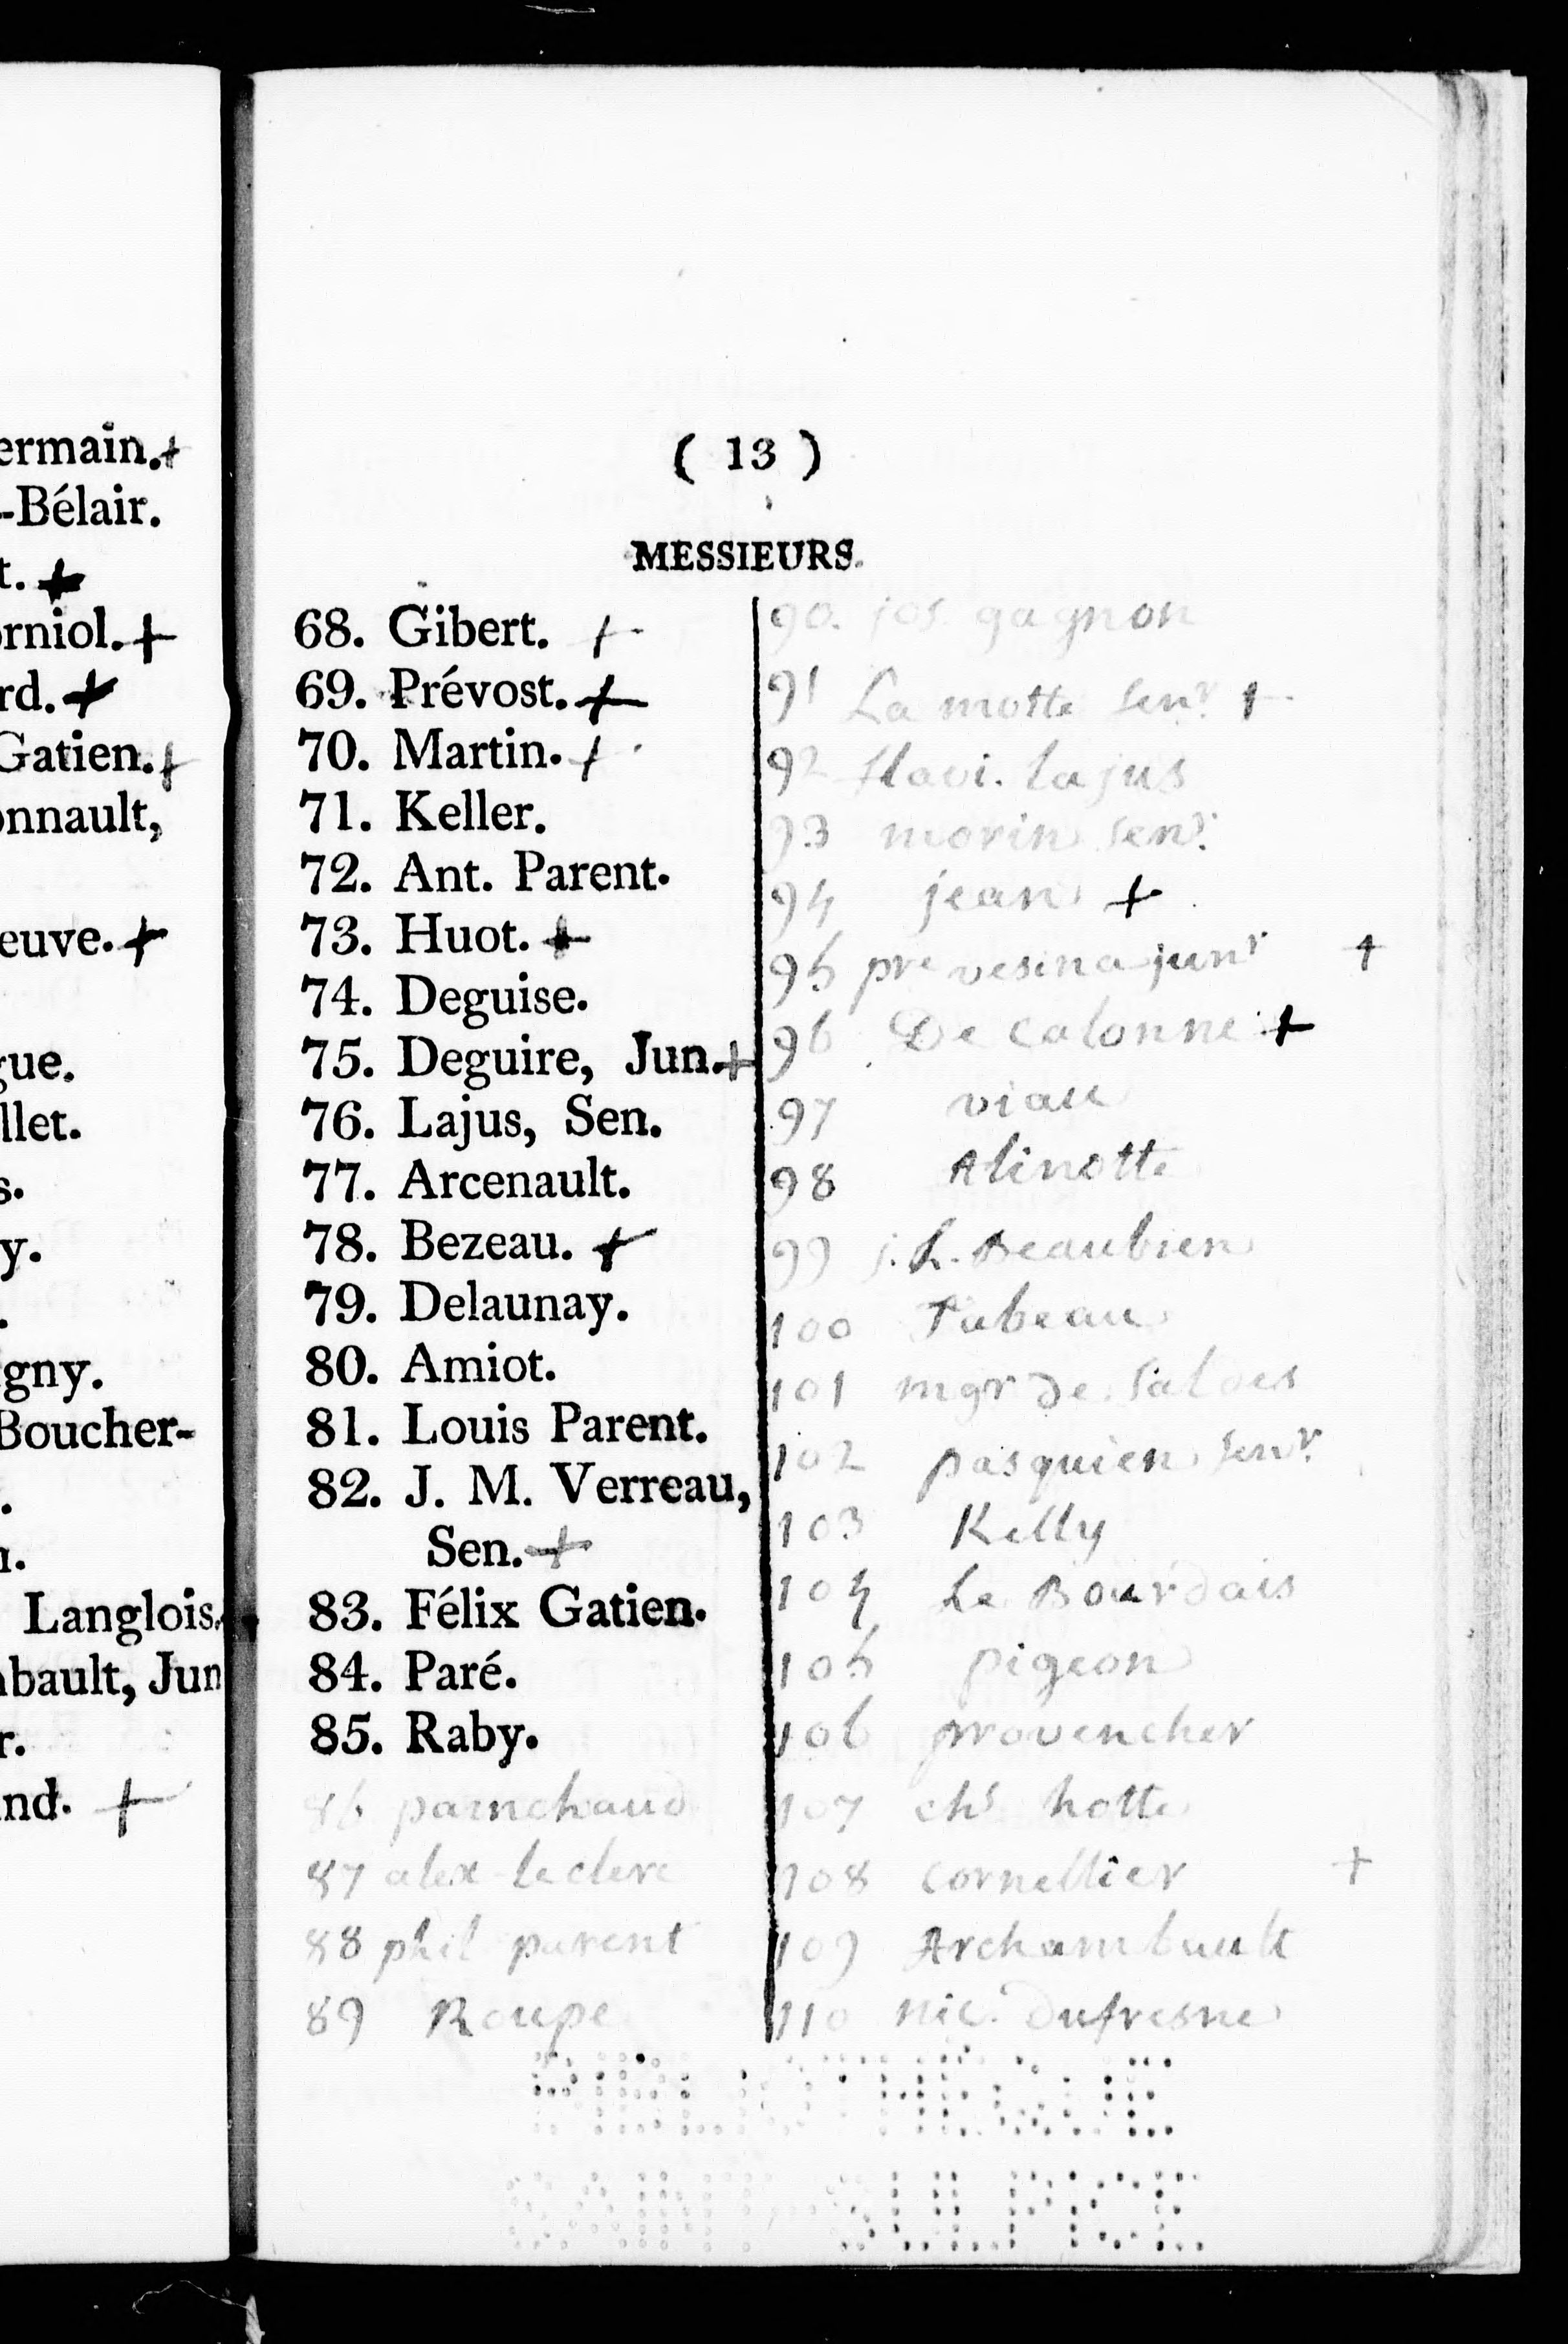 ermain.+
-Bélair.
t. +
orniol.+
rd.+
Gatien.+
onnault,
euve.+
gue.
llet.
s.
y.
.
gny.
Boucher-
.
n.
Langlois.
bault, Jun
r.
and. +
( 13 )
MESSIEURS.
68. Gibert. +
69. Prévost. +
70. Martin. +
71. Keller.
72. Ant. Parent.
73. Huot. +
74. Deguise.
75. Deguire, Jun.+
76. Lajus, Sen.
77. Arcenault.
78. Bezeau. +
79. Delaunay.
80. Amiot.
81. Louis Parent.
82. J. M. Verreau,
Sen.+
83. Félix Gatien.
84. Paré.
85. Raby.
86 painchaud
87 alex leclerc
88 phil parent
89 Roupe
90. jos. gagnon
91 La motte senr. +
92 flavi. Lajus
93 morin senr.
94 jean +
95 pre vesina junr +
96 De Calonne +
97 viau
98 Alinotte
99 j. L. Beaubien
100 Tabeau
101 mgr de Saldes
102 pasquien senr.
103 Kelly
104 Le Bourdais
105 pigeon
106 provencher
107 chs hotte
108 cornellier +
109 Archambault
110 nic. Dufresne
BIBLIOTHEQUE
SAINT-SULPICE